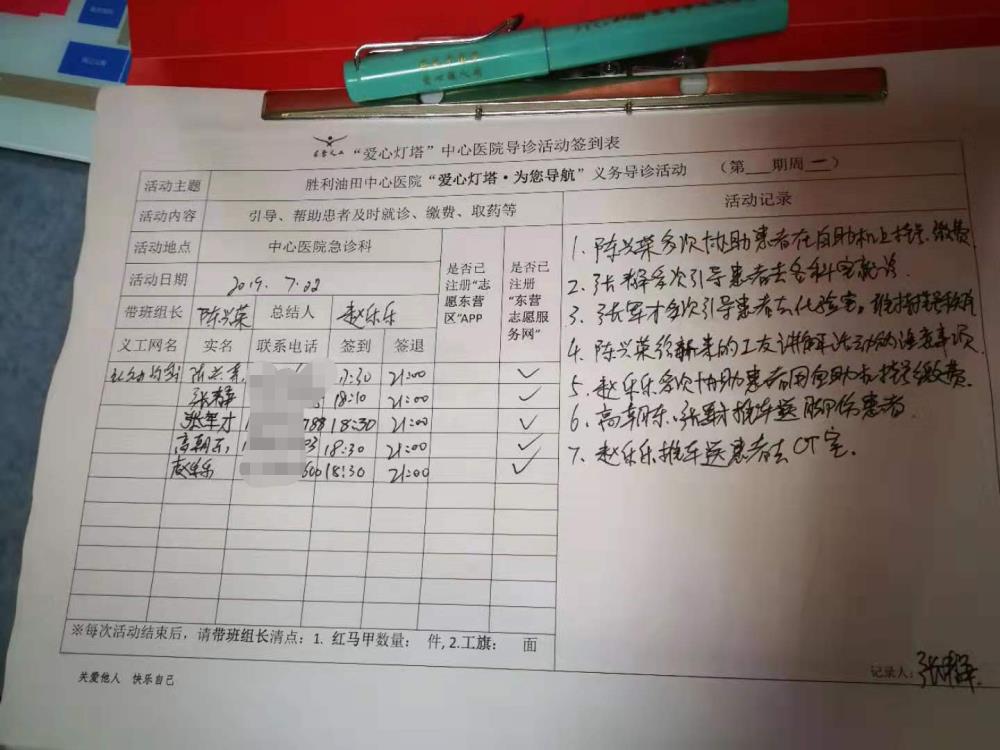 “爱心灯塔”中心医院导诊活动签到表
活动主题 胜利油田中心医院“爱心灯塔·为您导航”义务导诊活动 (第 期周一)
活动内容 引导、帮助患者及时就诊、缴费、取药等
活动地点 中心医院急诊科
活动日期 2019. 7.22
是否已注册“志愿东营区”APP
是否已注册“东营志愿服务网”
带班组长 陈兴荣 总结人 赵乐乐
义工网名 实名 联系电话 签到 签退
陈兴荣 17:30 21:00 ✓
张释 18:10 21:00 ✓
张军才 788 18:30 21:00 ✓
高朝东 93 18:30 21:00 ✓
赵乐乐 600 18:30 21:00 ✓
※每次活动结束后，请带班组长清点：1. 红马甲数量： 件, 2.工旗： 面
关爱他人 快乐自己
活动记录
1. 陈兴荣多次协助患者在自助机上挂号、缴费
2. 张释多次引导患者去各科室就诊.
3. 张军才多次引导患者去化验室。维持
4. 陈兴荣给新来的工友讲解活动的注意事项.
5. 赵乐乐多次协助患者用自助机挂号缴费.
6. 高朝东、张军才推车送脚伤患者.
7. 赵乐乐推车送患者去CT室.
记录人：张释